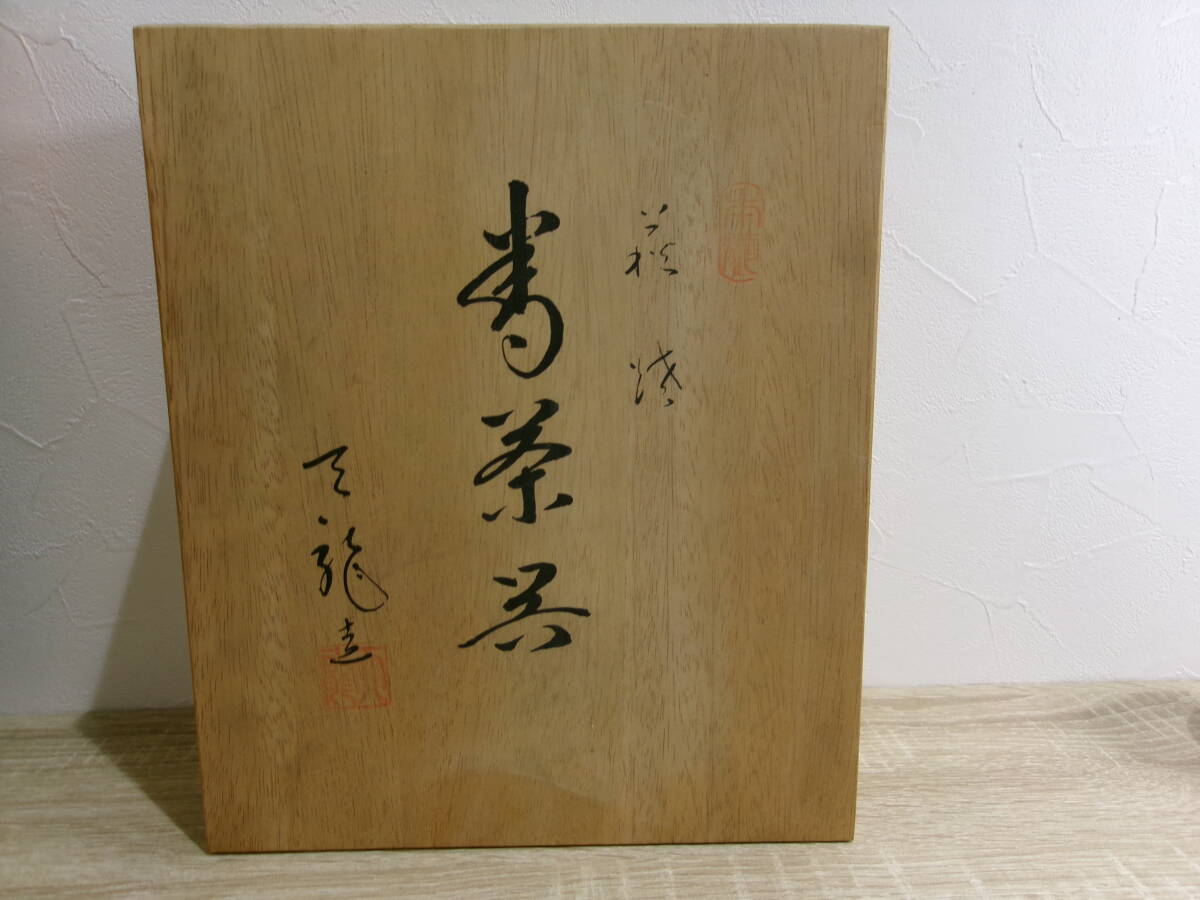 萩焼
番茶器
天龍造